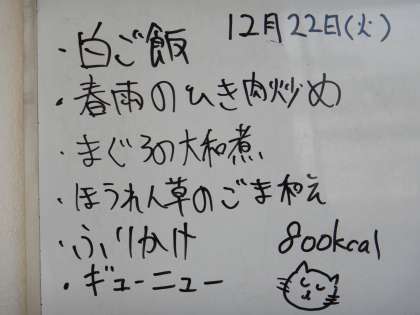 12月22日(火)
・白ご飯
・春雨のひき肉炒め
・まぐろの大和煮
・ほうれん草のごま和え
・ふりかけ
・ギューニュー
800kcal